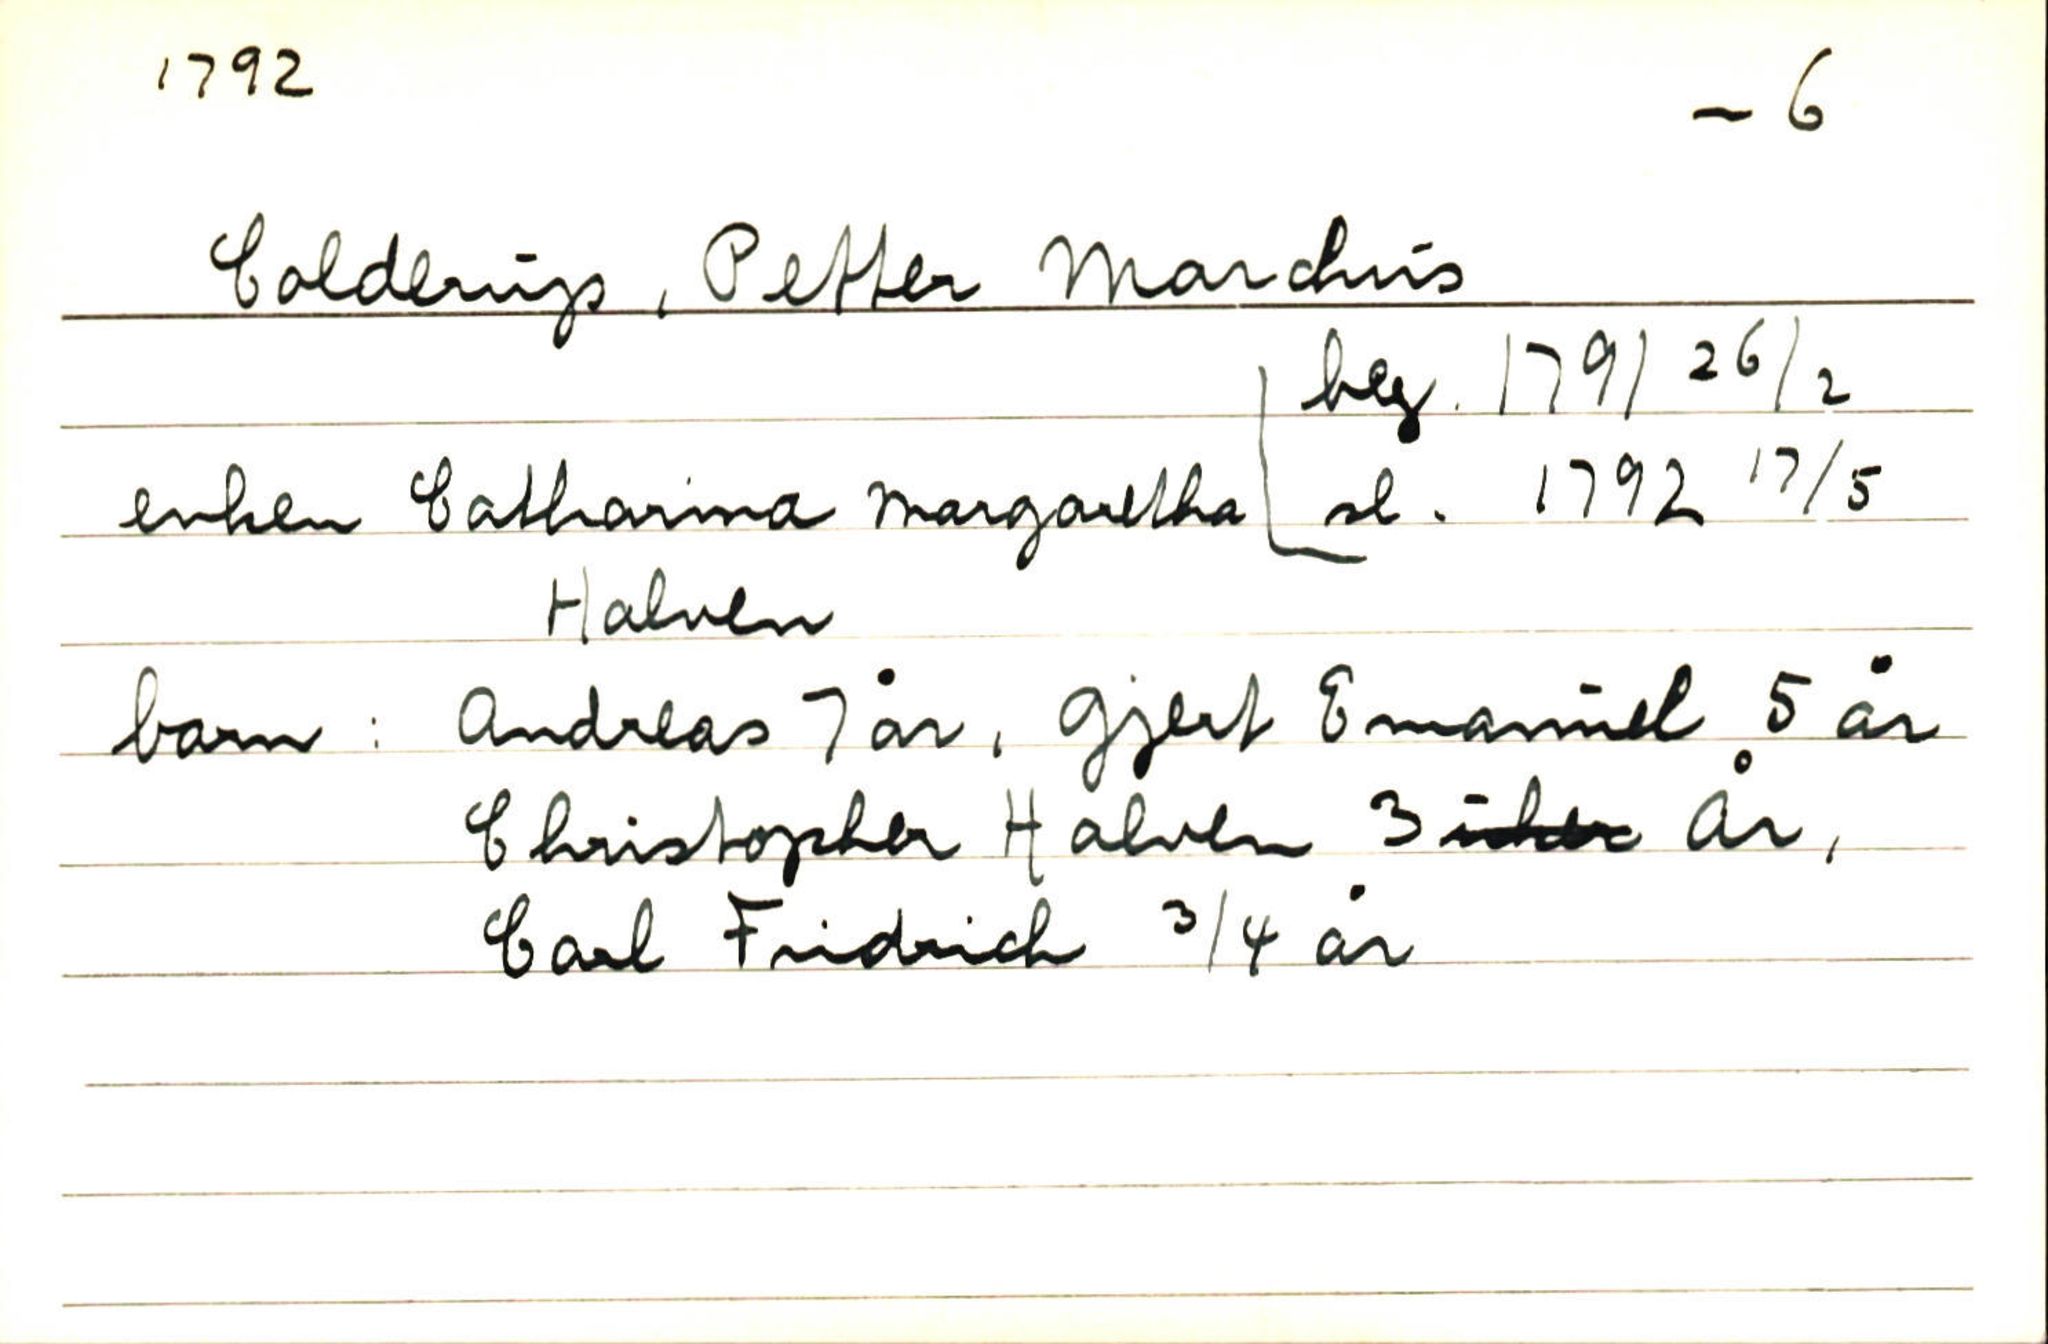 1792 - 6
Colderup, Petter Marchus
beg. 1791 26/2
enken Catharina Margaretha sl. 1792 17/5
Halven
barn : Andreas 7 år, Gjert Emanuel 5 år
Christopher Halven 3 uker år,
Carl Fridrich 3/4 år